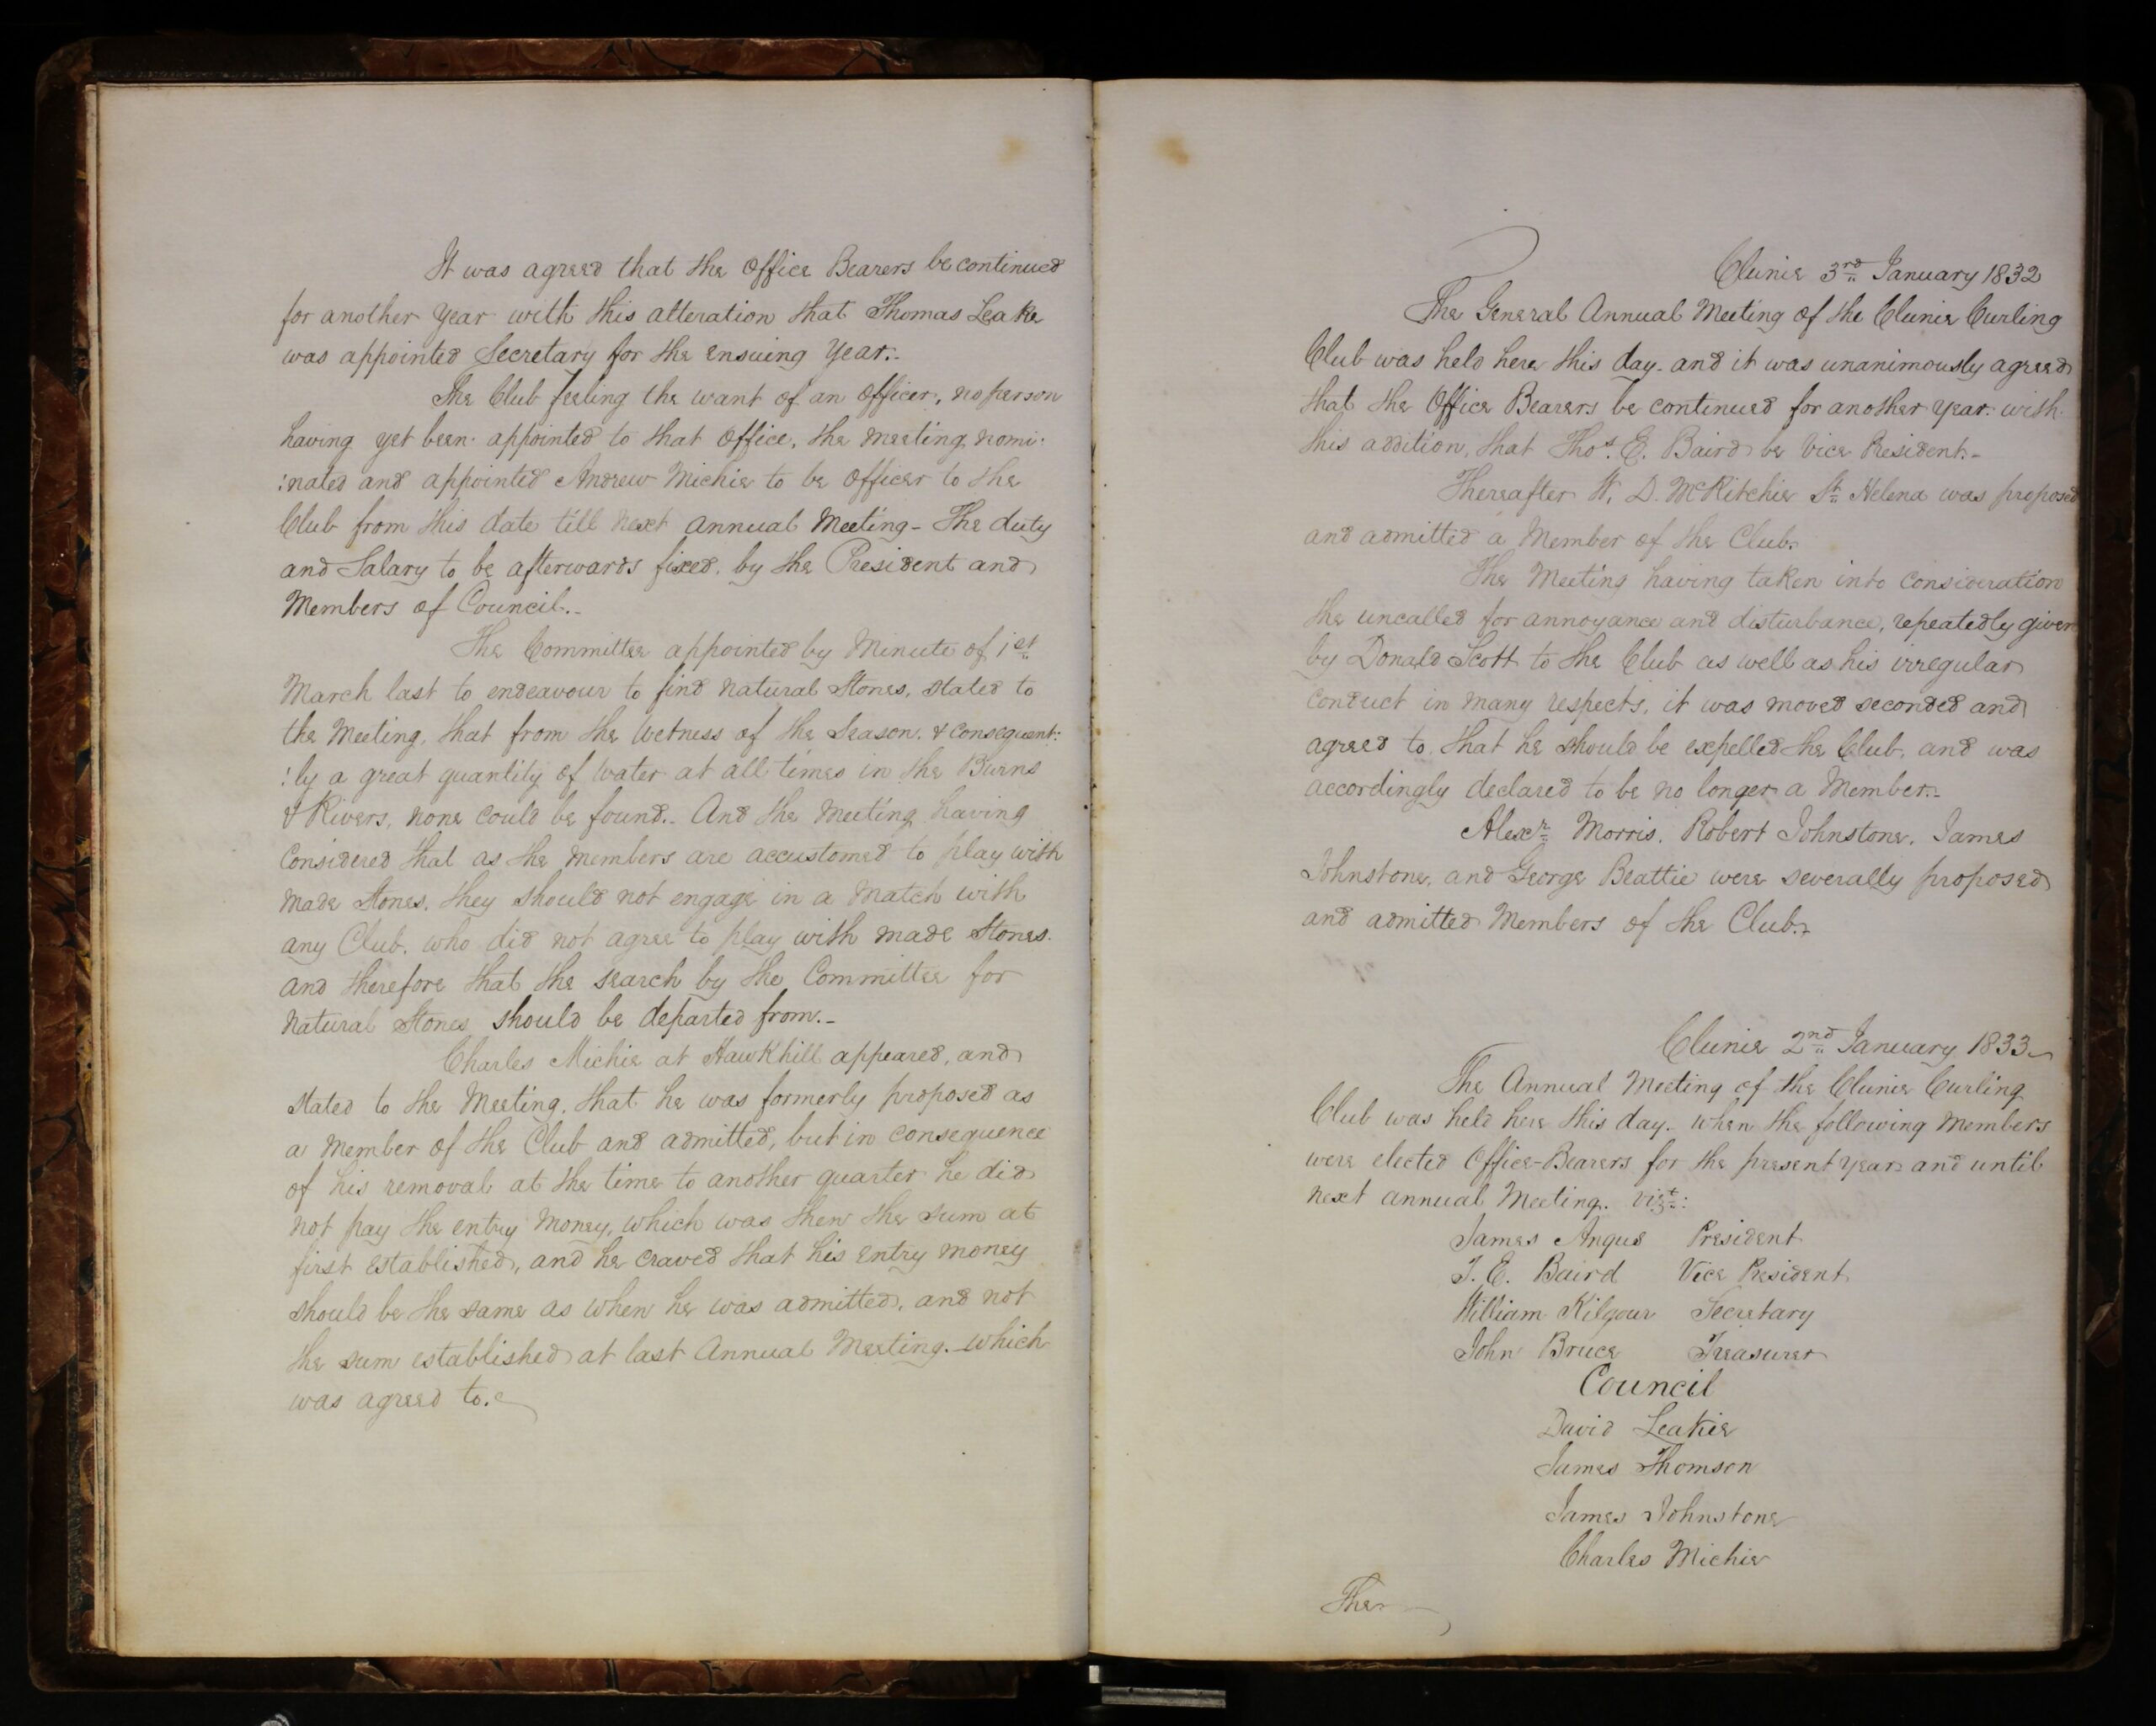 It was agreed that the Office Bearers be continued
for another Year with this alteration that Thomas Leake
was appointed Secretary for the ensuing Year.-
The Club feeling the want of an Officer, no person
having yet been appointed to that Office, the Meeting nomi:
:nated and appointed Andrew Michie to be Officer to the
Club from this date till next Annual Meeting - The duty
and Salary to be afterwards fixed, by the President and
Members of Council.-
The Committee appointed by Minute of 1st
March last to endeavour to find natural Stones, stated to
the Meeting, that from the Wetness of the Season, & consequent:
:ly a great quantity of Water at all times in the Burns
& Rivers, none could be found.- And the Meeting having
Considered that as the Members are accustomed to play with
made Stones, they should not engage in a Match with
any Club, who did not agree to play with made Stones.
and therefore that the search by the Committee for
Natural Stones should be departed from.-
Charles Michie at Hawkhill appeared, and
stated to the Meeting, that he was formerly proposed as
a Member of the Club and admitted, but in consequence
of his removal at the time to another quarter he did
not pay the entry Money, which was then the sum at
first established, and he craved that his entry money
should be the same as when he was admitted, and not
the sum established at last Annual Meeting.- which
was agreed to.
Clunie 3rd January 1832
The General Annual Meeting of the Clunie Curling
Club was held here this day. and it was unanimously agreed
that the Office Bearers be continued for another Year with
this addition, that Thos. E. Baird be Vice President.-
Thereafter W. D. McRitchie St. Helena was proposed
and admitted a Member of the Club.
The Meeting having taken into consideration
the uncalled for annoyance and disturbance, repeatedly given
by Donald Scott to the Club as well as his irregular
conduct in many respects, it was moved seconded and
agreed to that he should be expelled the Club, and was
accordingly declared to be no longer a Member.-
Alexr. Morris, Robert Johnstone, James
Johnstone, and George Beattie were severally proposed
and admitted Members of the Club.-
Clunie 2nd January 1833
The Annual Meeting of the Clunie Curling
Club was held here this day. when the following Members
were elected Office-Bearers for the present year and until
next annual Meeting. Vizt:
James Angus President
T. E. Baird Vice President
William Kilgour Secretary
John Bruce Treasurer
Council
David Leakie
James Thomson
James Johnstone
Charles Michie
The